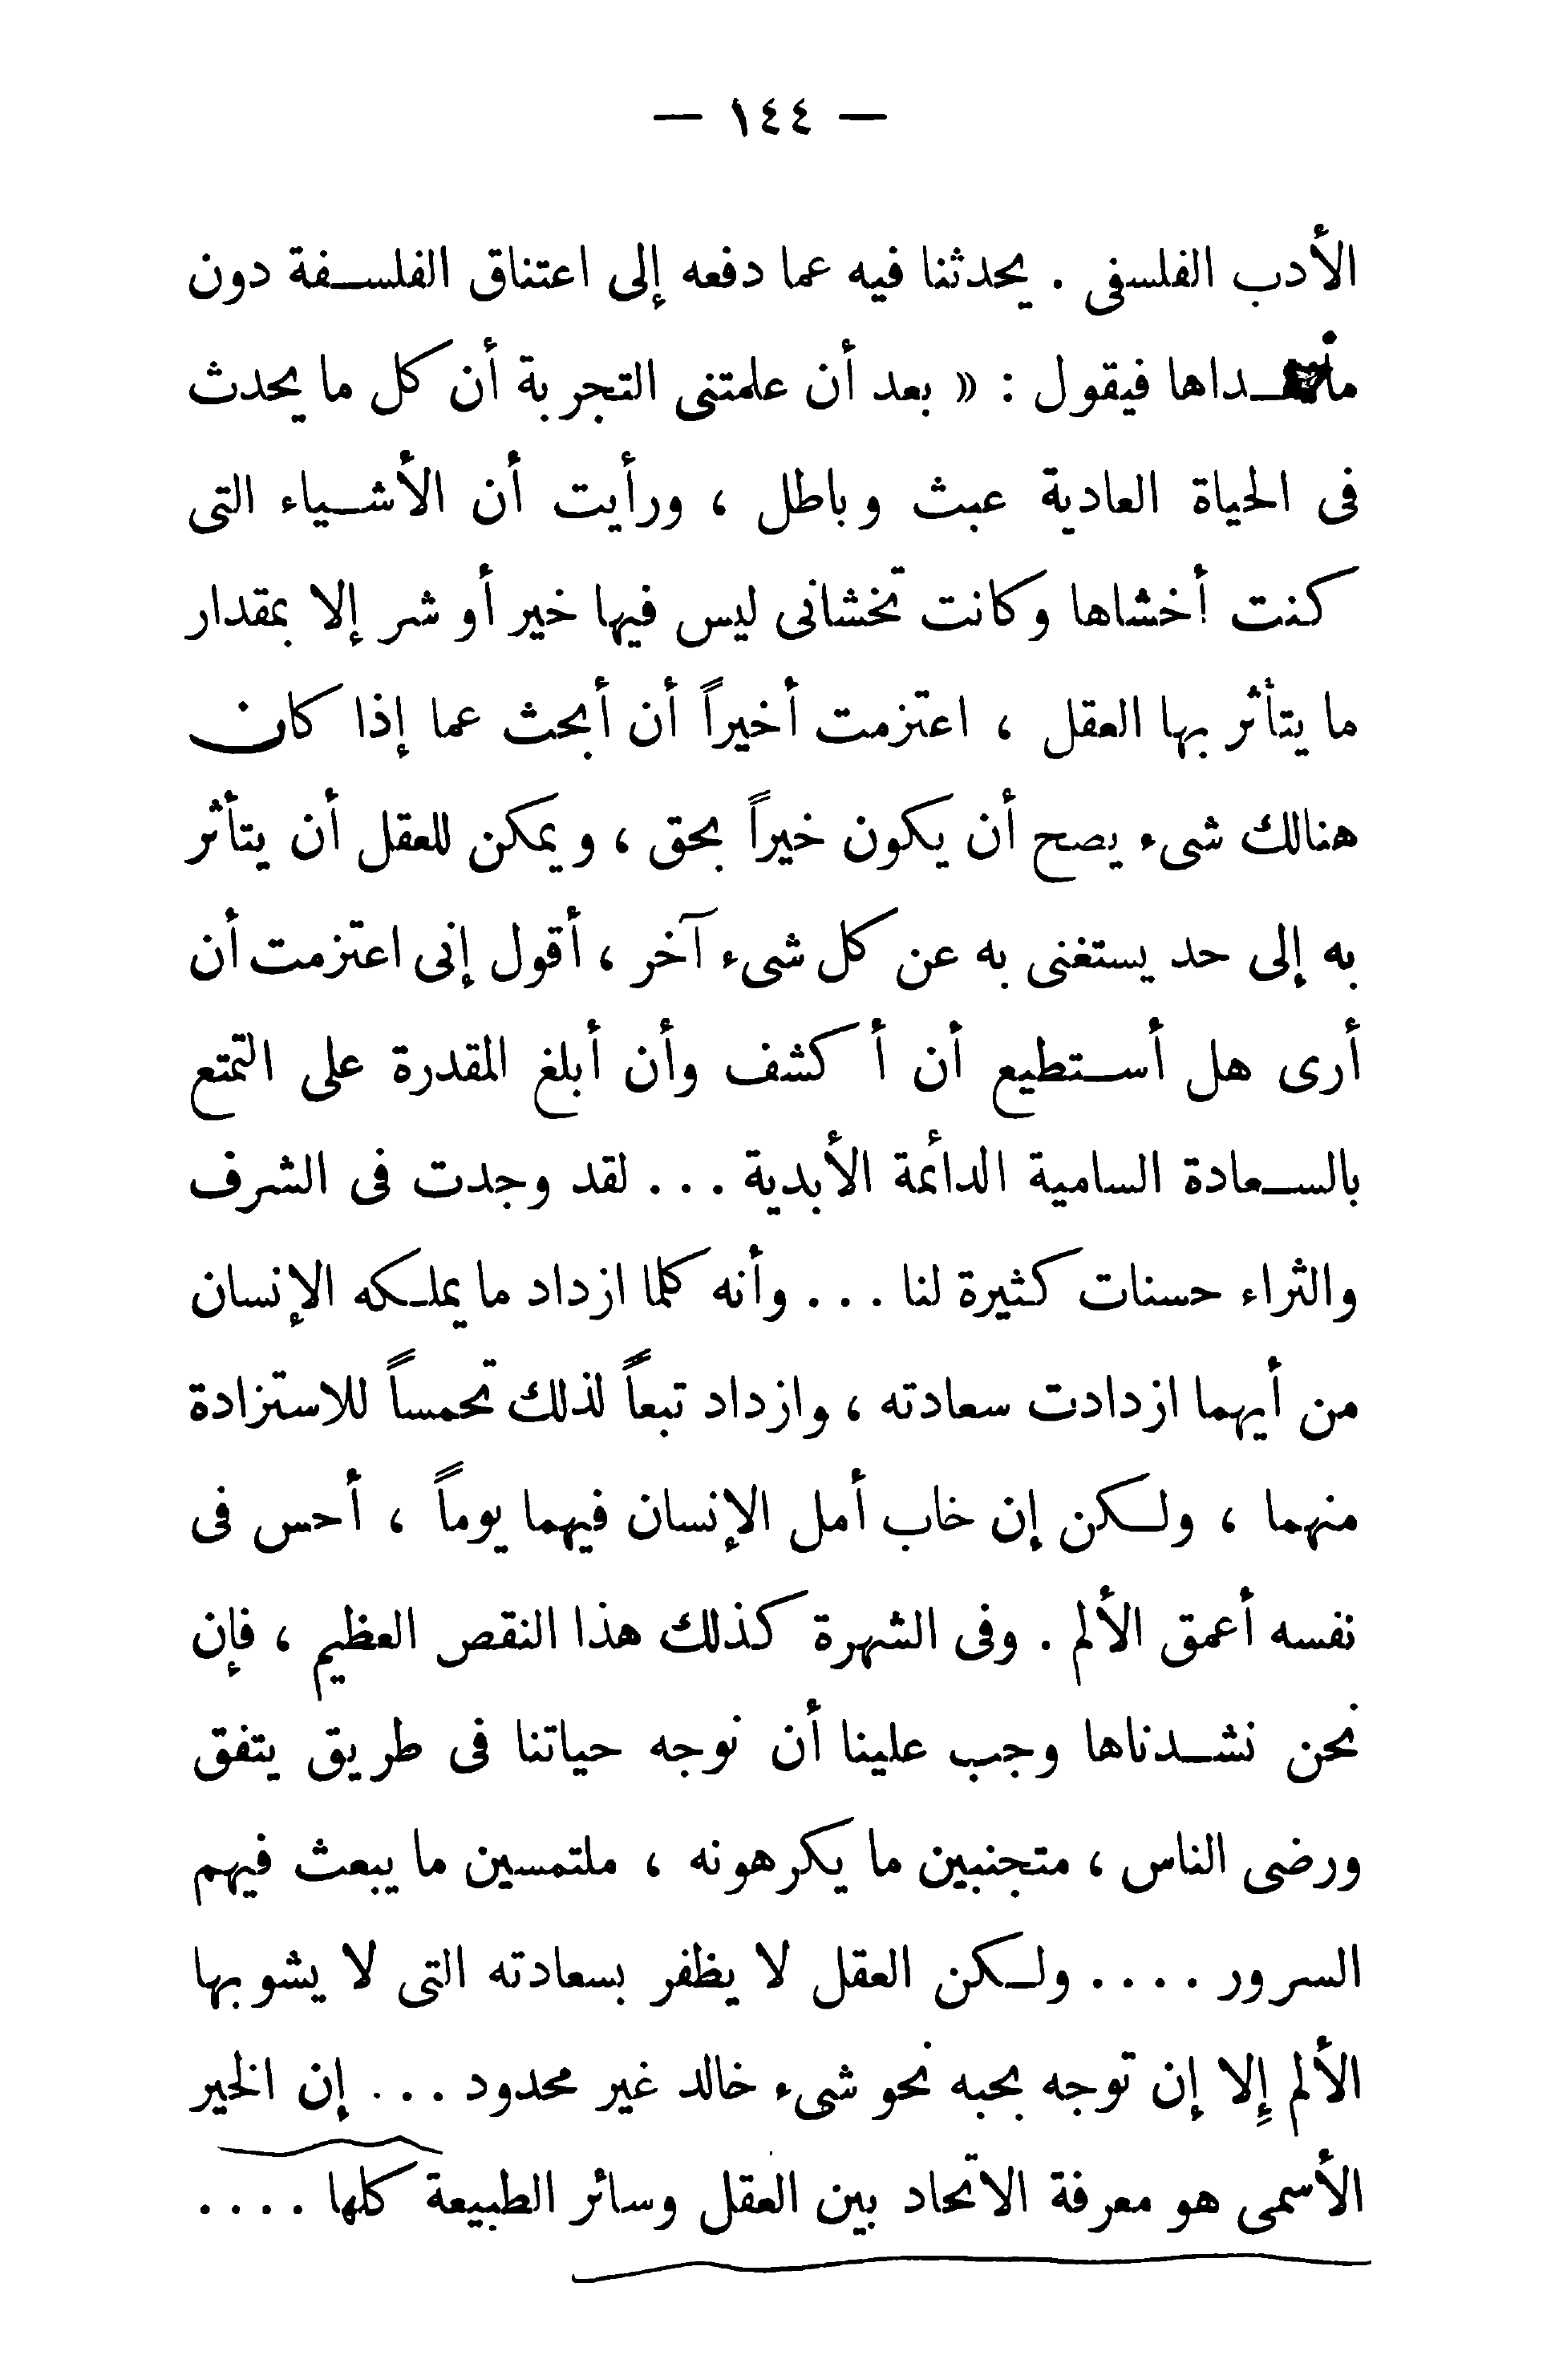 — ١٤٤ —
الأدب الفلسفى . يحدثنا فيه عما دفعه إلى اعتناق الفلسفة دون
ما عداها فيقول : « بعد أن علمتنى التجربة أن كل ما يحدث
فى الحياة العادية عبث وباطل ، ورأيت أن الأشياء التى
كنت أخشاها وكانت تخشانى ليس فيها خير أو شر إلا بمقدار
ما يتأثر بها العقل ، اعتزمت أخيراً أن أبحث عما إذا كان
هنالك شىء يصح أن يكون خيراً بحق ، ويمكن للعقل أن يتأثر
به إلى حد يستغنى به عن كل شىء آخر ، أقول إنى اعتزمت أن
أرى هل أستطيع أن أكشف وأن أبلغ المقدرة على التمتع
بالسعادة السامية الدائمة الأبدية ... لقد وجدت فى الشرف
والثراء حسنات كثيرة لنا ... وأنه كلما ازداد ما يملكه الإنسان
من أيهما ازدادت سعادته ، وازداد تبعاً لذلك تحمساً للاستزادة
منهما ، ولكن إن خاب أمل الإنسان فيهما يوماً ، أحس فى
نفسه أعمق الألم . وفى الشهرة كذلك هذا النقص العظيم ، فإن
نحن نشدناها وجب علينا أن نوجه حياتنا فى طريق يتفق
ورضى الناس ، متجنبين ما يكرهونه ، ملتمسين ما يبعث فيهم
السرور .... ولكن العقل لا يظفر بسعادته التى لا يشوبها
الألم إلا إن توجه بحبه نحو شىء خالد غير محدود ... إن الخير
الأسمى هو معرفة الاتحاد بين العقل وسائر الطبيعة كلها ....